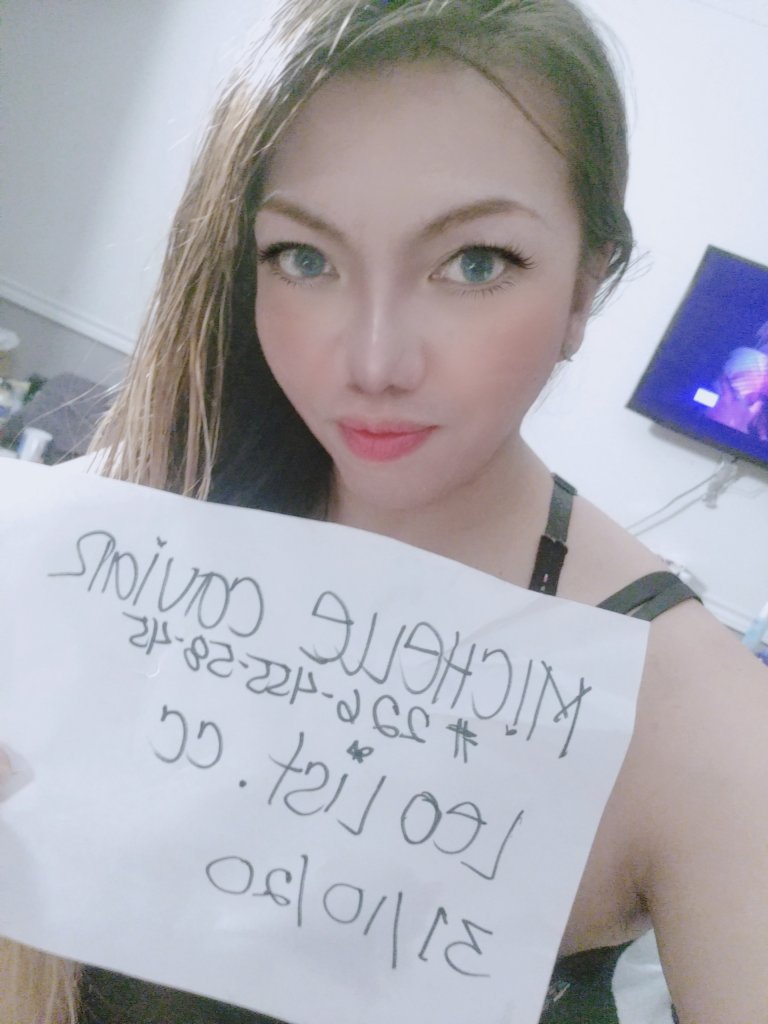 MICHELLE CAVIAR
# 226-455-58-45
LEO LIST.CC
31/10/20